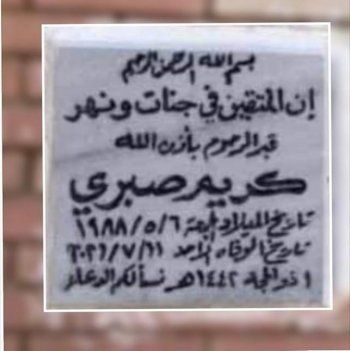 بسم الله الرحمن الرحيم
إن المتقين في جنات ونهر
قبر المرحوم بأذن الله
كريم صبري
تاريخ الميلاد الجمعة ١٩٨٨/٥/٦
تاريخ الوفاه الأحد ٢٠٢١/٧/١١
١ ذو الحجة ١٤٤٢هـ نسألكم الدعاء